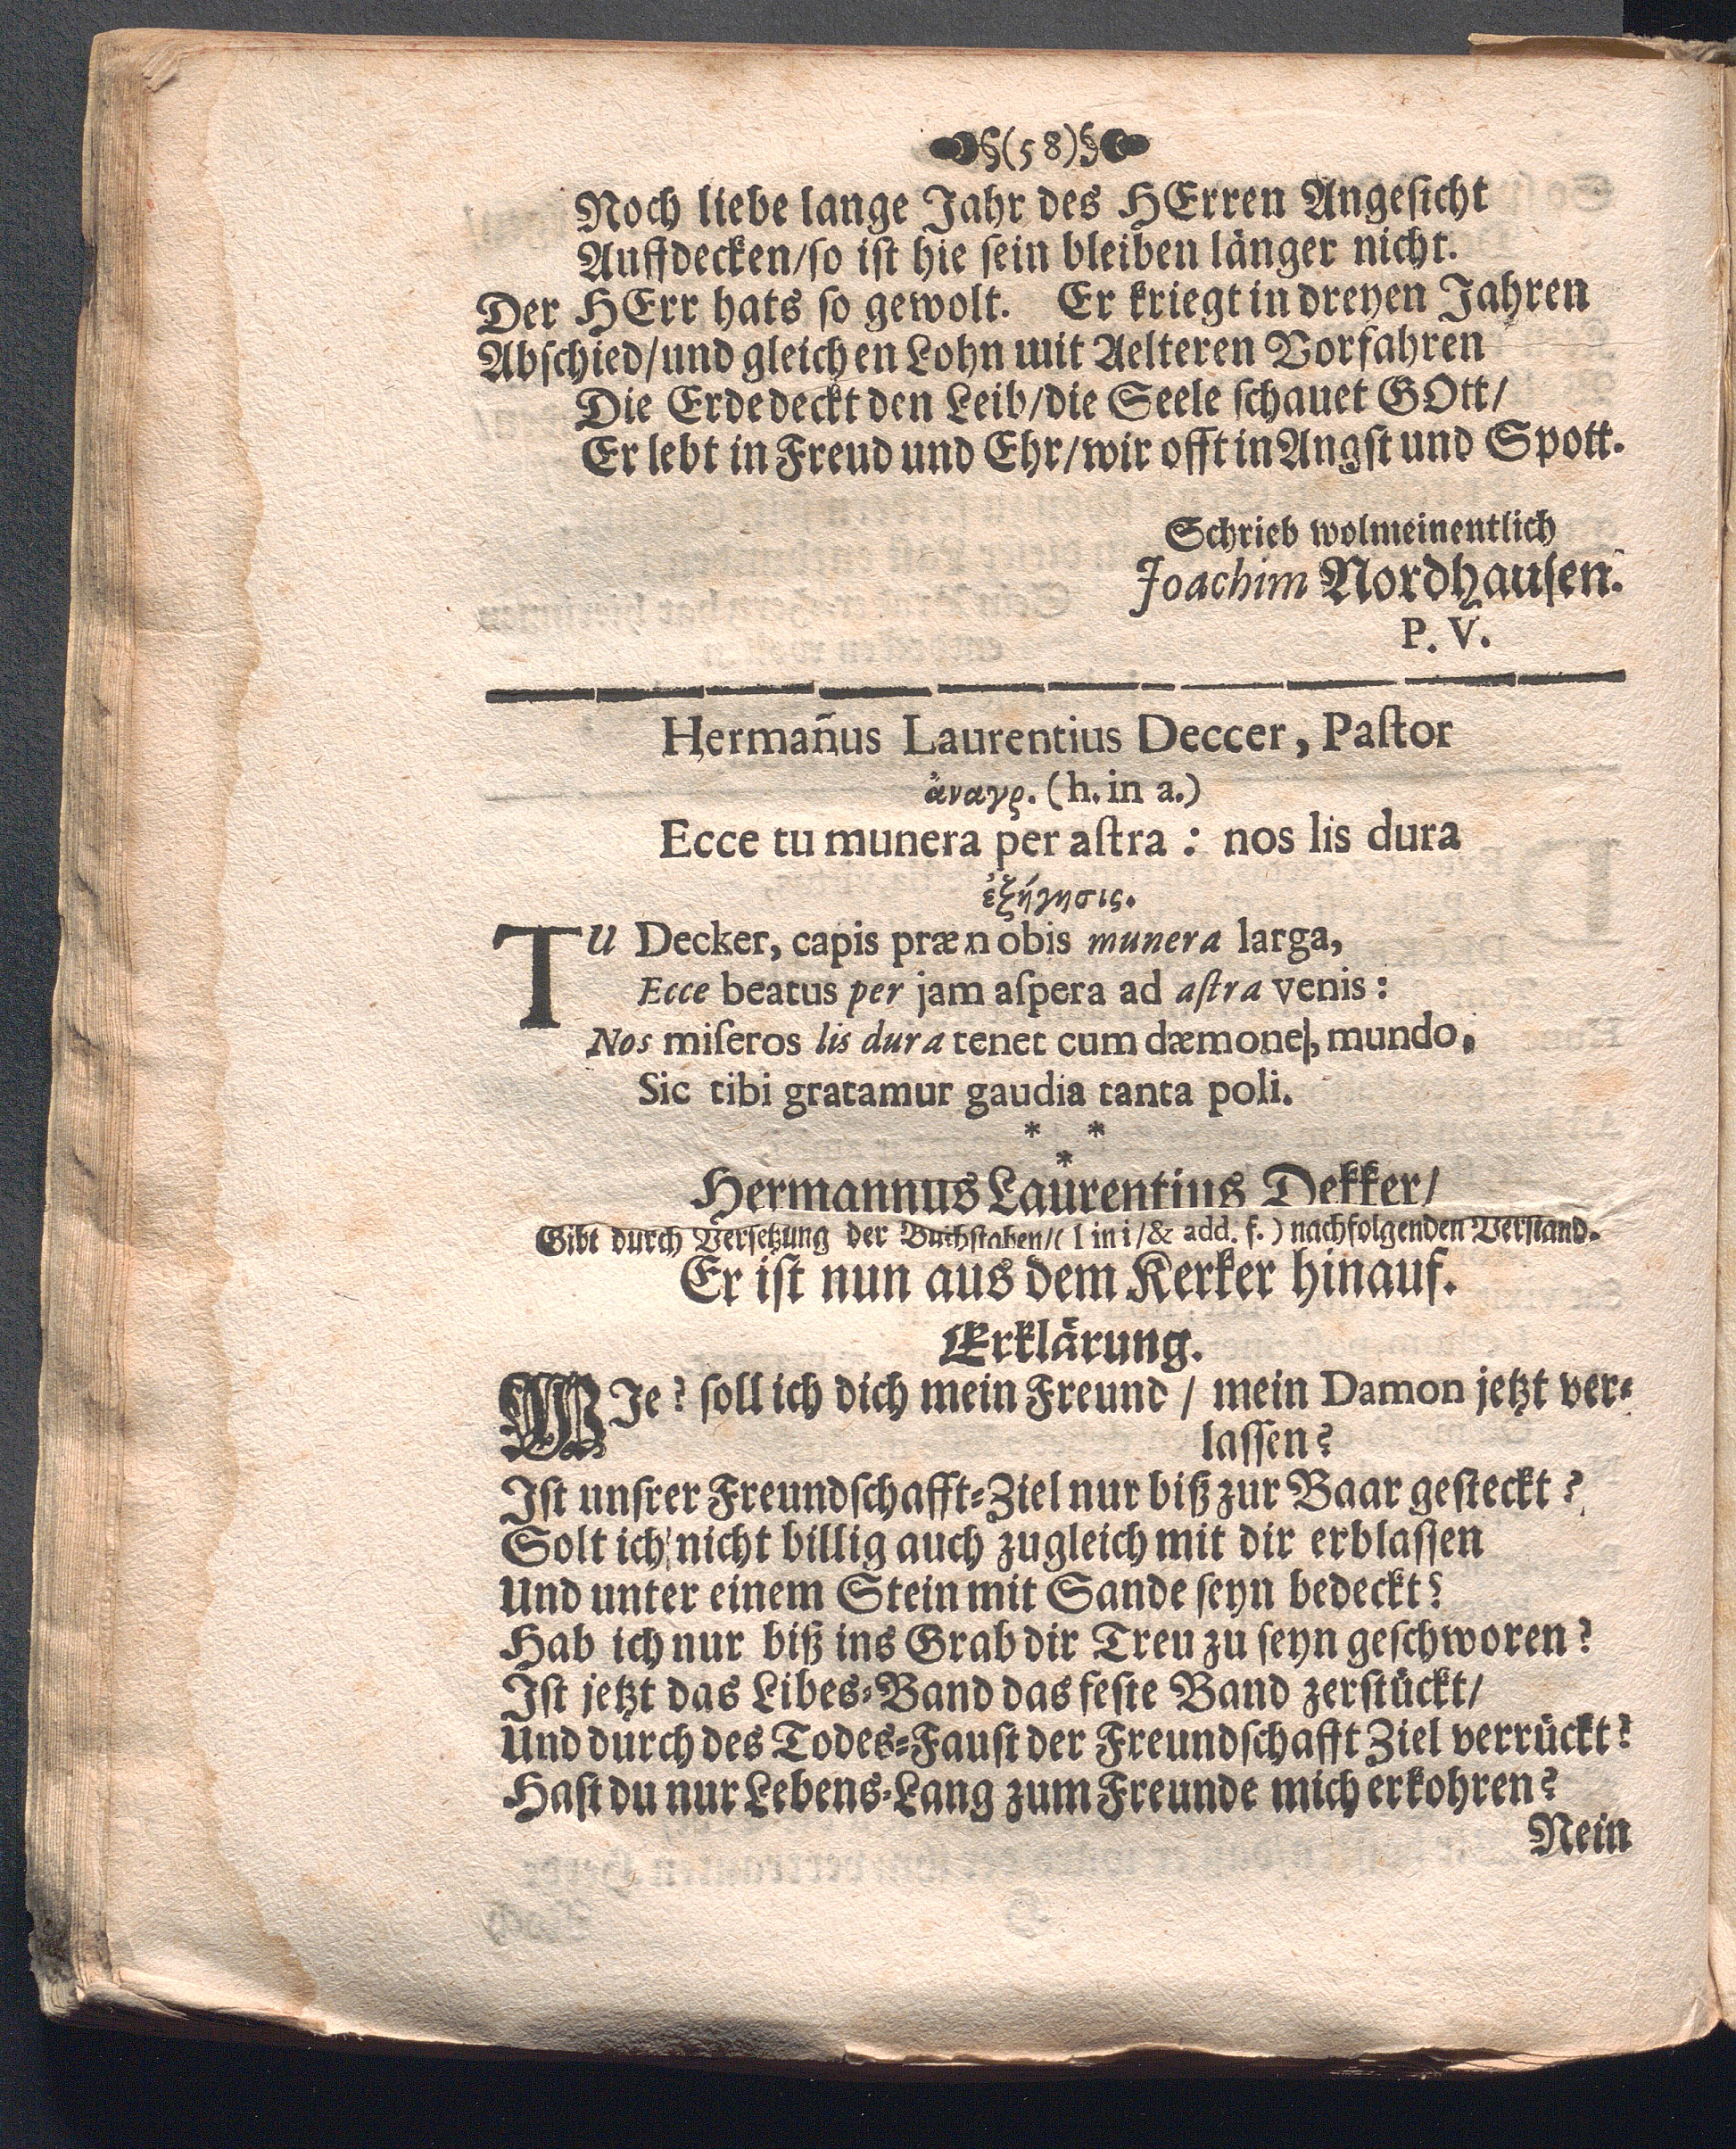 §(58)§
Noch liebe lange Jahr des HErren Angesicht
Auffdecken/so ist hie sein bleiben länger nicht.
Der HErr hats so gewolt. Er kriegt in dreyen Jahren
Abschied/und gleichen Lohn mit Aelteren Vorfahren
Die Erde deckt den Leib/die Seele schauet GOtt/
Er lebt in Freud und Ehr/wir offt in Angst und Spott.
Schrieb wolmeinentlich
Joachim Nordhausen.
P. V.
Hermañus Laurentius Deccer, Pastor
ἀναγρ. (h. in a.)
Ecce tu munera per astra : nos lis dura
ἐξήγησις.
TU Decker, capis præ nobis munera larga,
Ecce beatus per jam aspera ad astra venis :
Nos miseros lis dura tenet cum dæmone, mundo,
Sic tibi gratamur gaudia tanta poli.
* *
*
Hermannus Laurentius Dekker/
Gibt durch Versetzung der Buchstaben/( l in i/& add. f. ) nachfolgenden Verstand.
Er ist nun aus dem Kerker hinauf.
Erklärung.
WIe? soll ich dich mein Freund / mein Damon jetzt ver-
lassen?
Ist unsrer Freundschafft-Ziel nur biß zur Baar gesteckt?
Solt ich nicht billig auch zugleich mit dir erblassen
Und unter einem Stein mit Sande seyn bedeckt?
Hab ich nur biß ins Grab dir Treu zu seyn geschworen?
Ist jetzt das Libes-Band das feste Band zerstückt/
Und durch des Todes-Faust der Freundschafft Ziel verrückt?
Hast du nur Lebens-Lang zum Freunde mich erkohren?
Nein